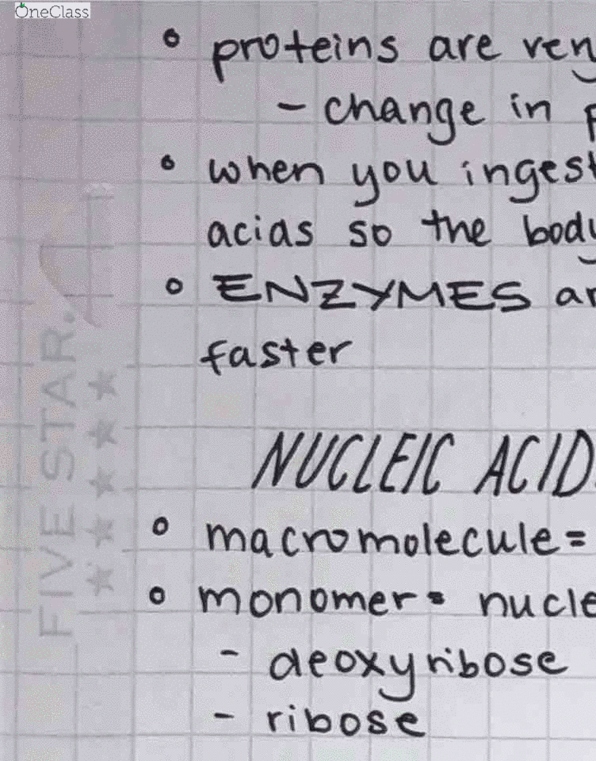 OneClass
° proteins are ven
- change in p
° when you ingest
acias so the body
° ENZYMES ar
faster
NUCLEIC ACID
° macromolecule =
° monomer = nucle
- deoxyribose
- ribose
FIVE STAR.